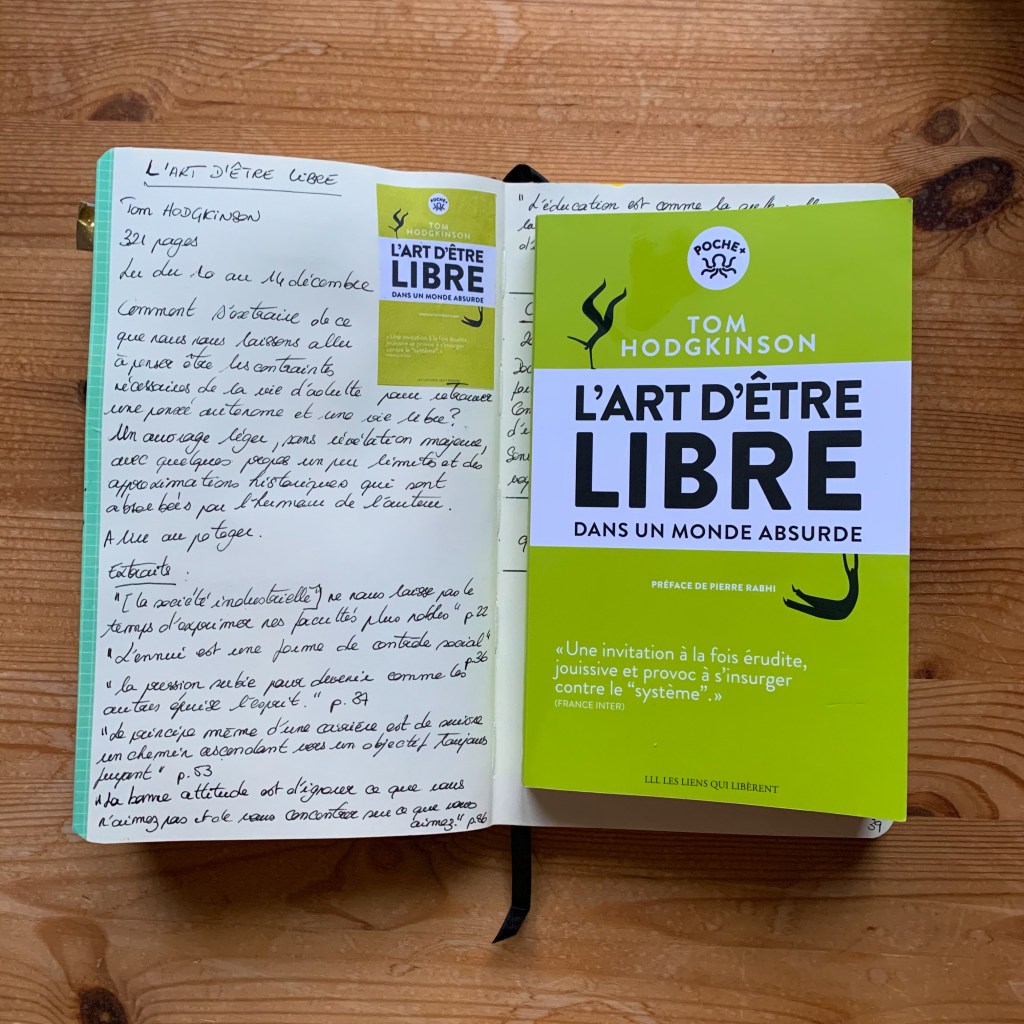 L'ART D'ÊTRE LIBRE
Tom HODGKINSON
321 pages
Lu du 10 au 14 décembre
Comment s'extraire de ce
que nous nous laissons aller
à penser être les contraintes
nécessaires de la vie d'adulte pour retrouver
une pensée autonome et une vie libre?
Un ouvrage léger, sans révélation majeure,
avec quelques propos un peu limites et des
approximations historiques qui sont
absorbées par l'humour de l'auteur.
A lire au potager.
Extraits :
"[la société industrielle] ne nous laisse pas le
temps d'exprimer nos facultés plus nobles" p.22
"L'ennui est une forme de contrôle social"
p.36
"la pression subie pour devenir comme les
autres épuise l'esprit." p.37
"Le principe même d'une carrière est de suivre
un chemin ascendant vers un objectif toujours
fuyant" p.53
"La bonne attitude est d'ignorer ce que vous
n'aimez pas et de vous concentrer sur ce que vous
aimez." p.86
POCHE+
TOM
HODGKINSON
L'ART D'ÊTRE
LIBRE
DANS UN MONDE ABSURDE
«Une invitation à la fois érudite,
jouissive et provoc à s'insurger
contre le "système".»
"L'éducation est comme la
la
39
POCHE+
TOM
HODGKINSON
L'ART D'ÊTRE
LIBRE
DANS UN MONDE ABSURDE
PRÉFACE DE PIERRE RABHI
«Une invitation à la fois érudite,
jouissive et provoc à s'insurger
contre le "système".»
(FRANCE INTER)
LLL LES LIENS QUI LIBÈRENT